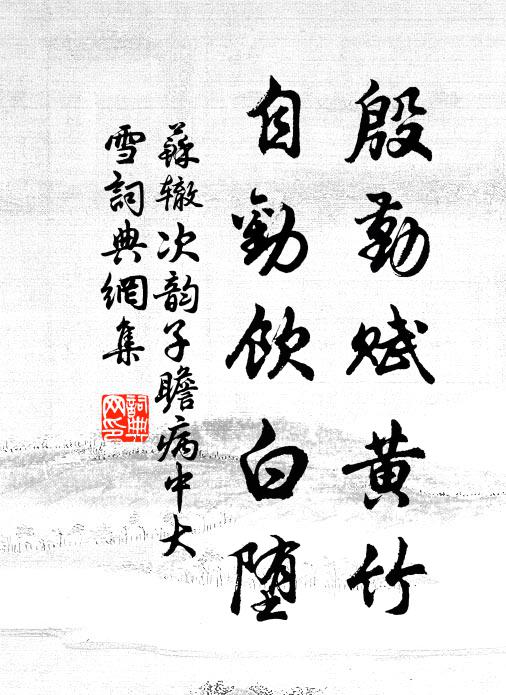 殷勤赋黄竹
自劝饮白堕
蘇辙次韵子瞻病中大
雪詞典網集
詞典网印